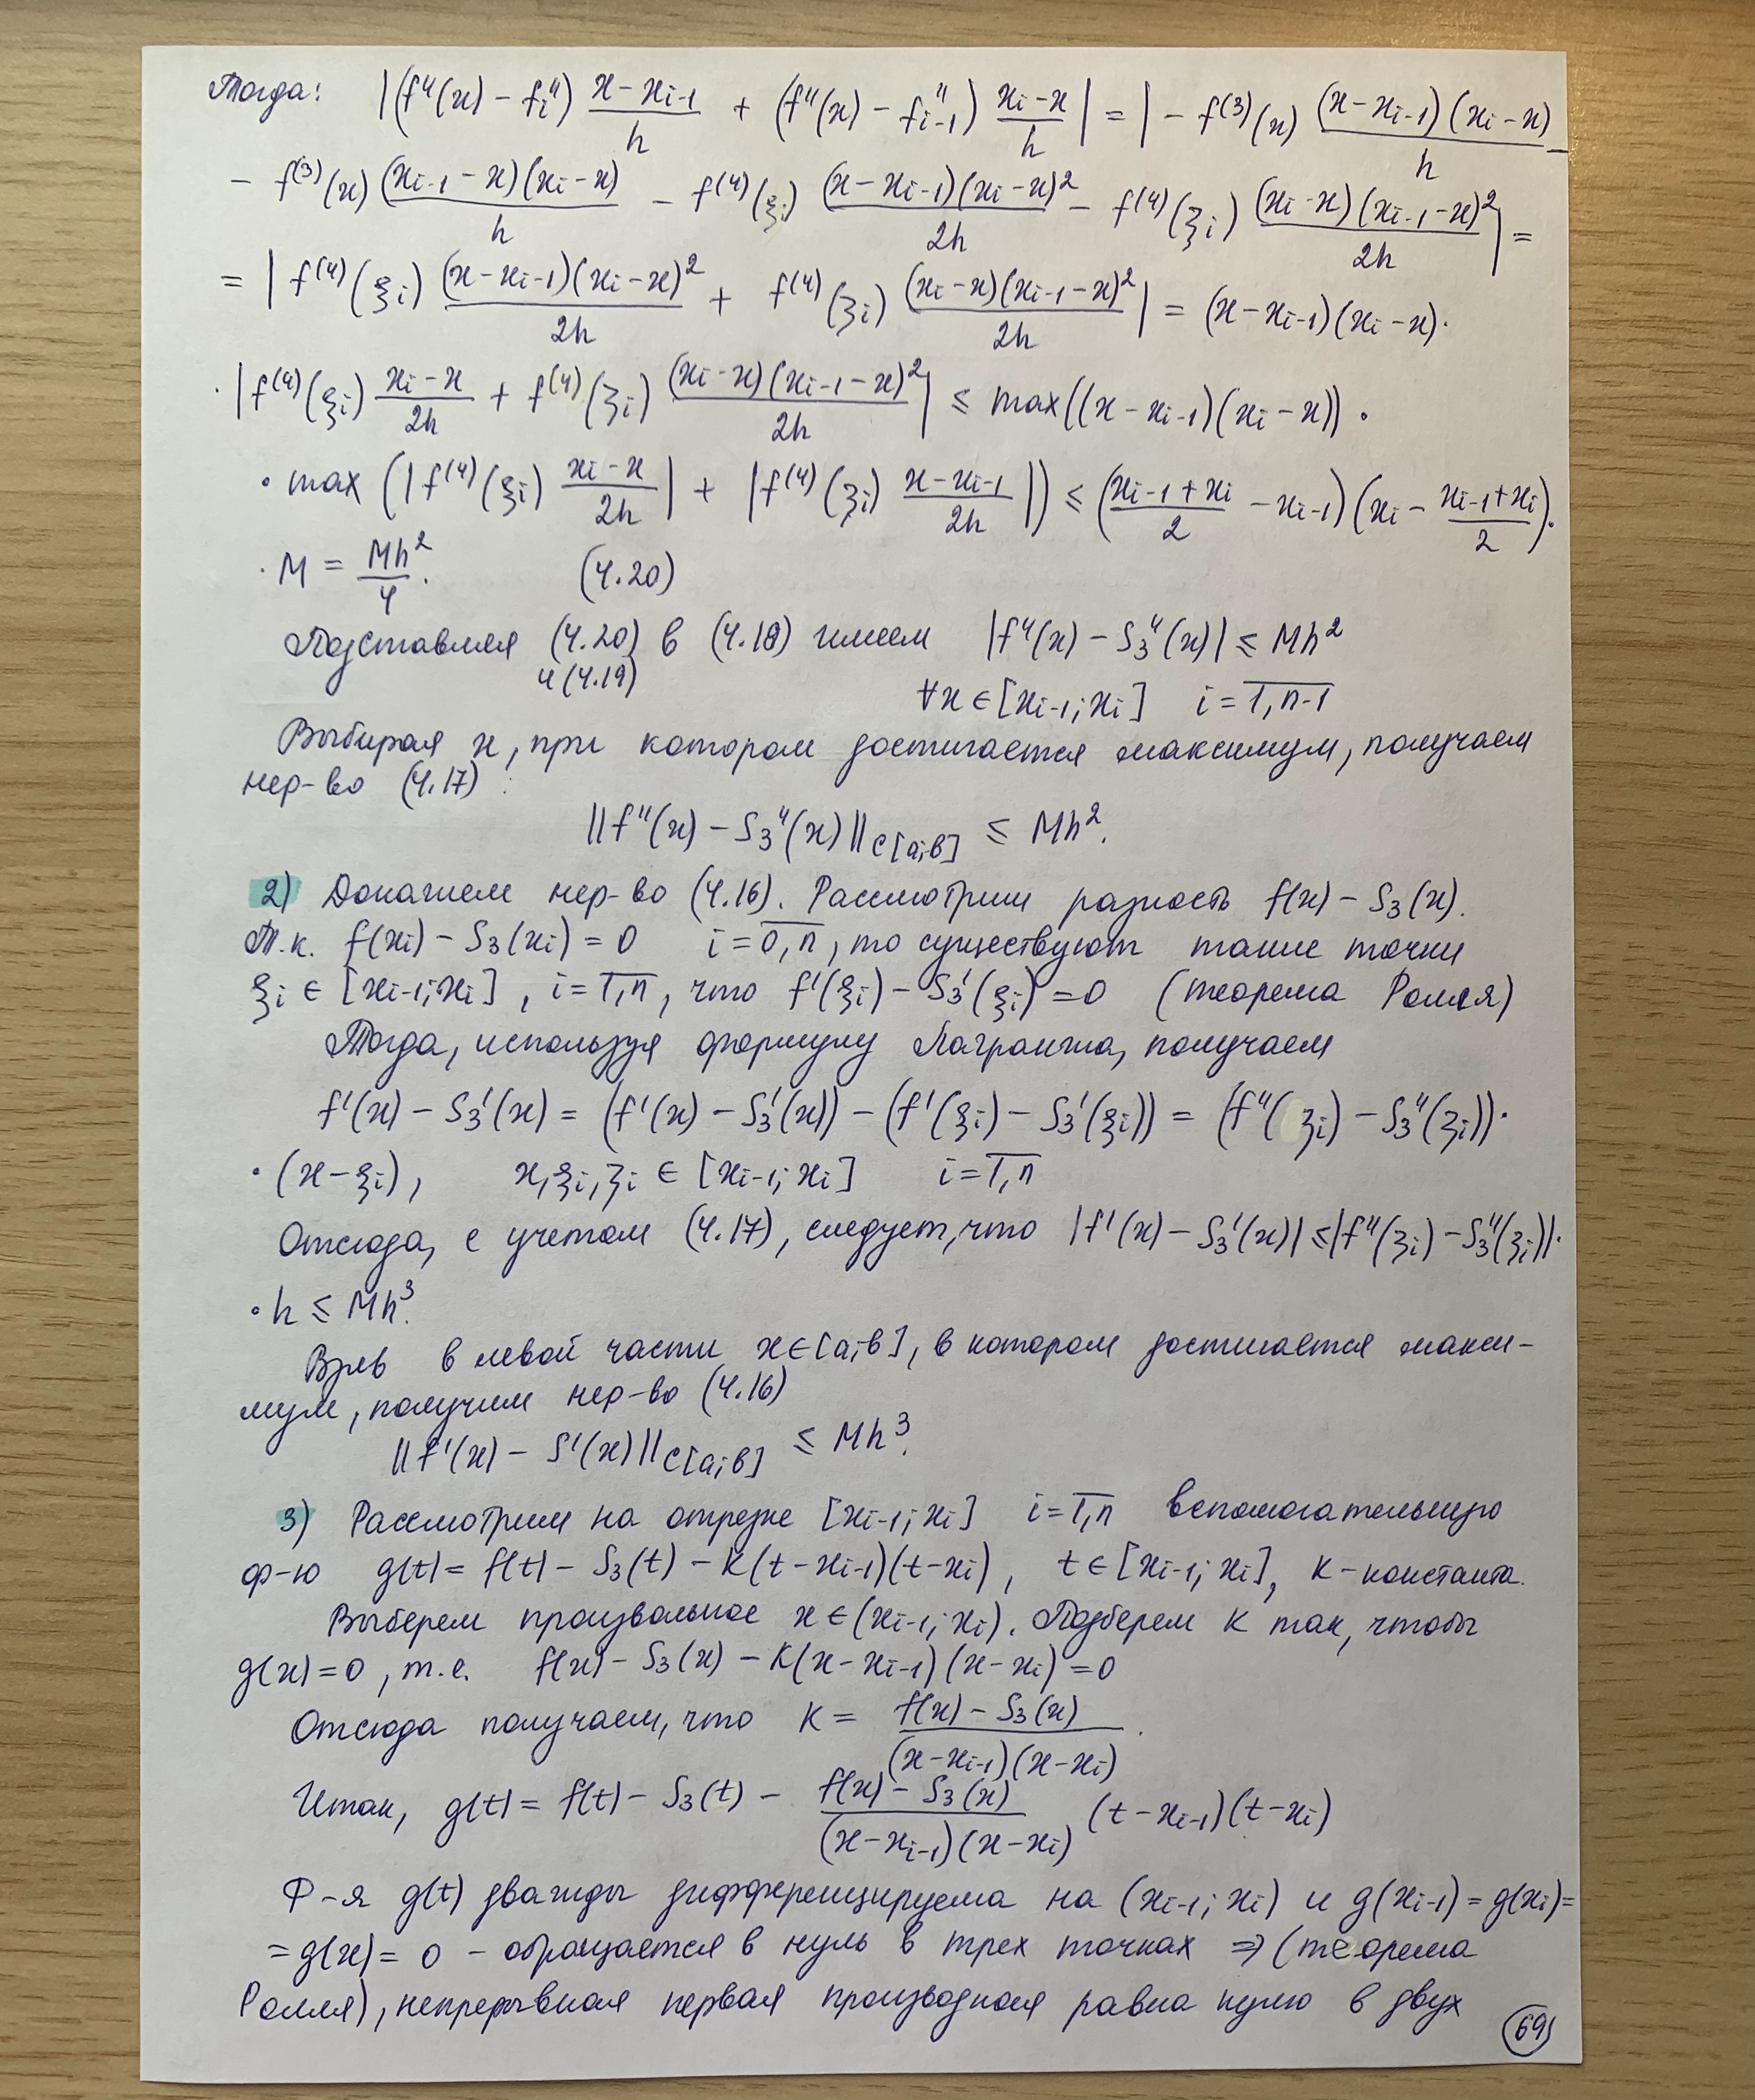 Тогда: |(f''(x) − fᵢ'') (x − xᵢ₋₁)/h + (f''(x) − fᵢ₋₁'') (xᵢ − x)/h| = |− f⁽³⁾(x) (x − xᵢ₋₁)(xᵢ − x)/h −
− f⁽³⁾(x) (xᵢ₋₁ − x)(xᵢ − x)/h − f⁽⁴⁾(ξᵢ) (x − xᵢ₋₁)(xᵢ − x)²/2h − f⁽⁴⁾(ζᵢ) (xᵢ − x)(xᵢ₋₁ − x)²/2h| =
= |f⁽⁴⁾(ξᵢ) (x − xᵢ₋₁)(xᵢ − x)²/2h + f⁽⁴⁾(ζᵢ) (xᵢ − x)(xᵢ₋₁ − x)²/2h| = (x − xᵢ₋₁)(xᵢ − x)·
·|f⁽⁴⁾(ξᵢ) (xᵢ − x)/2h + f⁽⁴⁾(ζᵢ) (xᵢ − x)(xᵢ₋₁ − x)²/2h| ≤ max((x − xᵢ₋₁)(xᵢ − x)) ·
· max (|f⁽⁴⁾(ξᵢ) (xᵢ − x)/2h| + |f⁽⁴⁾(ζᵢ) (x − xᵢ₋₁)/2h|) ≤ ((xᵢ₋₁ + xᵢ)/2 − xᵢ₋₁)(xᵢ − (xᵢ₋₁ + xᵢ)/2)·
· M = Mh²/4. (4.20)
Подставляя (4.20) в (4.18) имеем |f''(x) − S₃''(x)| ≤ Mh²
и (4.19) ∀x ∈ [xᵢ₋₁; xᵢ] i = 1, n-1
Выбирая x, при котором достигается максимум, получаем
нер-во (4.17) :
||f''(x) − S₃''(x)||C[a;b] ≤ Mh².
2) Докажем нер-во (4.16). Рассмотрим разность f(x) − S₃(x).
Т.к. f(xᵢ) − S₃(xᵢ) = 0 i = 0, n, то существуют такие точки
ξᵢ ∈ [xᵢ₋₁; xᵢ], i = 1, n, что f'(ξᵢ) − S₃'(ξᵢ) = 0 (теорема Ролля)
Тогда, используя формулу Лагранжа, получаем
f'(x) − S₃'(x) = (f'(x) − S₃'(x)) − (f'(ξᵢ) − S₃'(ξᵢ)) = (f''(ζᵢ) − S₃''(ζᵢ))·
· (x − ξᵢ), x, ξᵢ, ζᵢ ∈ [xᵢ₋₁; xᵢ] i = 1, n
Отсюда, с учетом (4.17), следует, что |f'(x) − S₃'(x)| ≤ |f''(ζᵢ) − S₃''(ζᵢ)|·
· h ≤ Mh³.
Взяв в левой части x ∈ [a; b], в котором достигается макси-
мум, получим нер-во (4.16)
||f'(x) − S'(x)||C[a;b] ≤ Mh³.
3) Рассмотрим на отрезке [xᵢ₋₁; xᵢ] i = 1, n вспомогательную
ф-ю g(t) = f(t) − S₃(t) − K(t − xᵢ₋₁)(t − xᵢ), t ∈ [xᵢ₋₁; xᵢ], K − константа.
Выберем произвольное x ∈ (xᵢ₋₁; xᵢ). Подберем K так, чтобы
g(x) = 0, т.е. f(x) − S₃(x) − K(x − xᵢ₋₁)(x − xᵢ) = 0
Отсюда получаем, что K = (f(x) − S₃(x))/((x − xᵢ₋₁)(x − xᵢ)).
Итак, g(t) = f(t) − S₃(t) − (f(x) − S₃(x))/((x − xᵢ₋₁)(x − xᵢ)) (t − xᵢ₋₁)(t − xᵢ)
Ф-я g(t) дважды дифференцируема на (xᵢ₋₁; xᵢ) и g(xᵢ₋₁) = g(xᵢ) =
= g(x) = 0 − обращается в нуль в трех точках ⇒ (теорема
Ролля), непрерывная первая производная равна нулю в двух
69